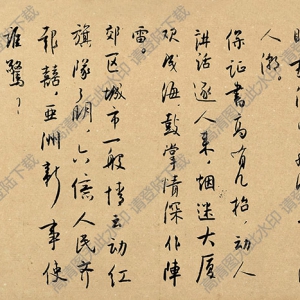 人潮。
保证书高首几抬，动人
讲话逐人来。烟迷大厦
欢成海，鼓掌情深作阵
雷。
郊区城市一般情，云动红
旗队了明。六亿人民齐
报囍，亚洲新事使
谁惊？